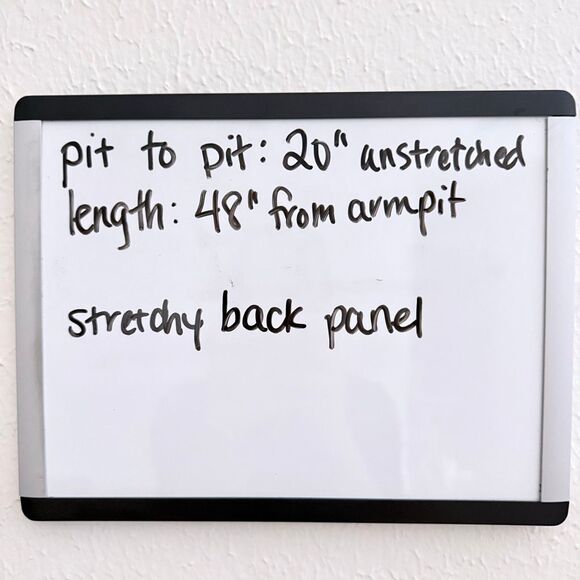 pit to pit: 20" unstretched
length: 48" from armpit
stretchy back panel